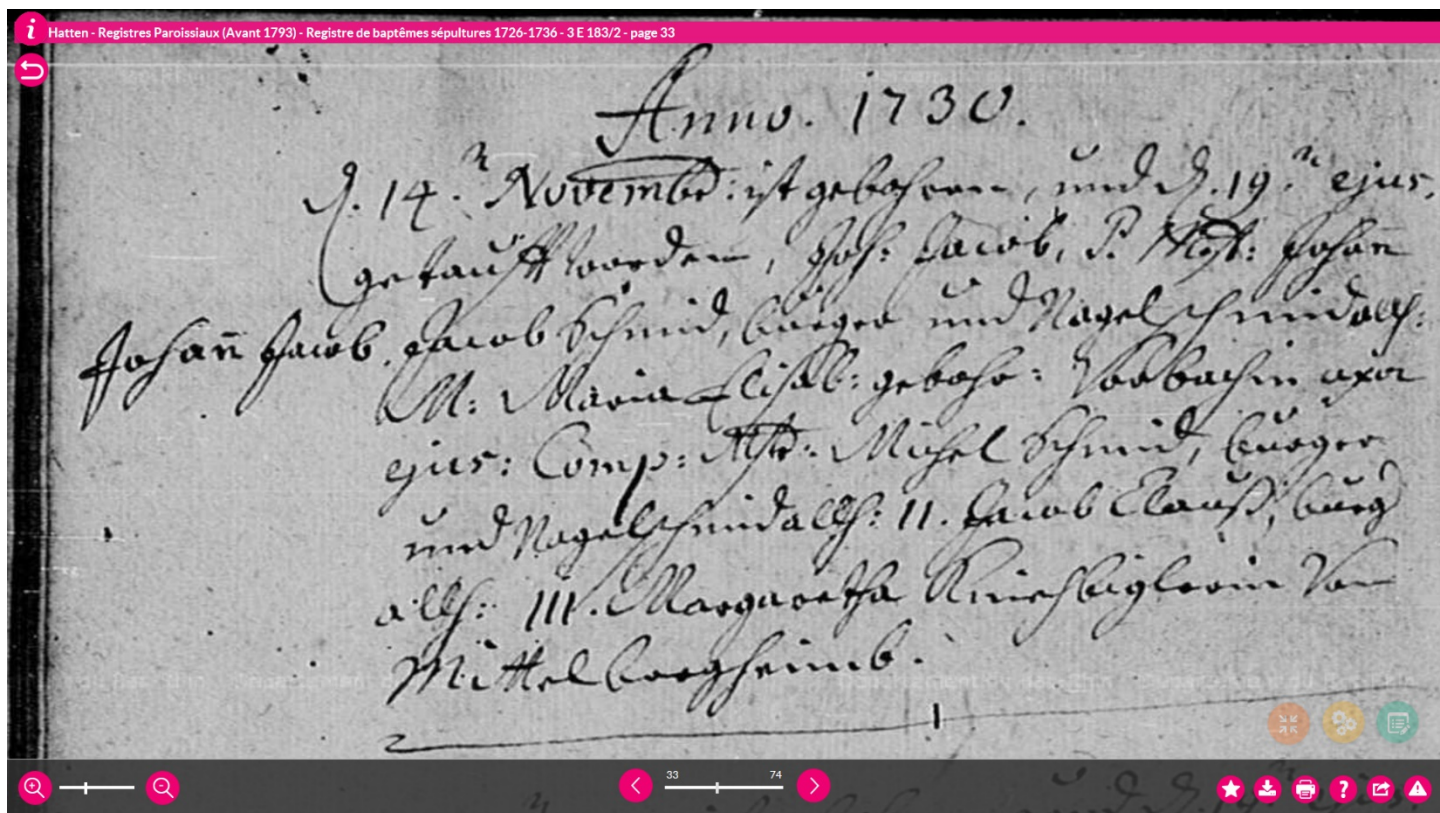 Hatten - Registres Paroissiaux (Avant 1793) - Registre de baptêmes sépultures 1726-1736 - 3 E 183/2 - page 33
Anno. 1730.
d. 14.n Novembr: ist gebohren, und d. 19.n ejus.
getaufft worden, Joh: Jacob, P. Mstr: Johann
Johann Jacob. Jacob Schmid, burger und Nagelschmid allh:
M: Maria Elisab: gebohr: Vorbachin uxor
ejus: Comp: Mstr: Michel Schmid, burger
und Nagelschmid allh: II. Jacob Clauß, burg
allh: III. Margaretha von
Mittelbergheimb.
33 74